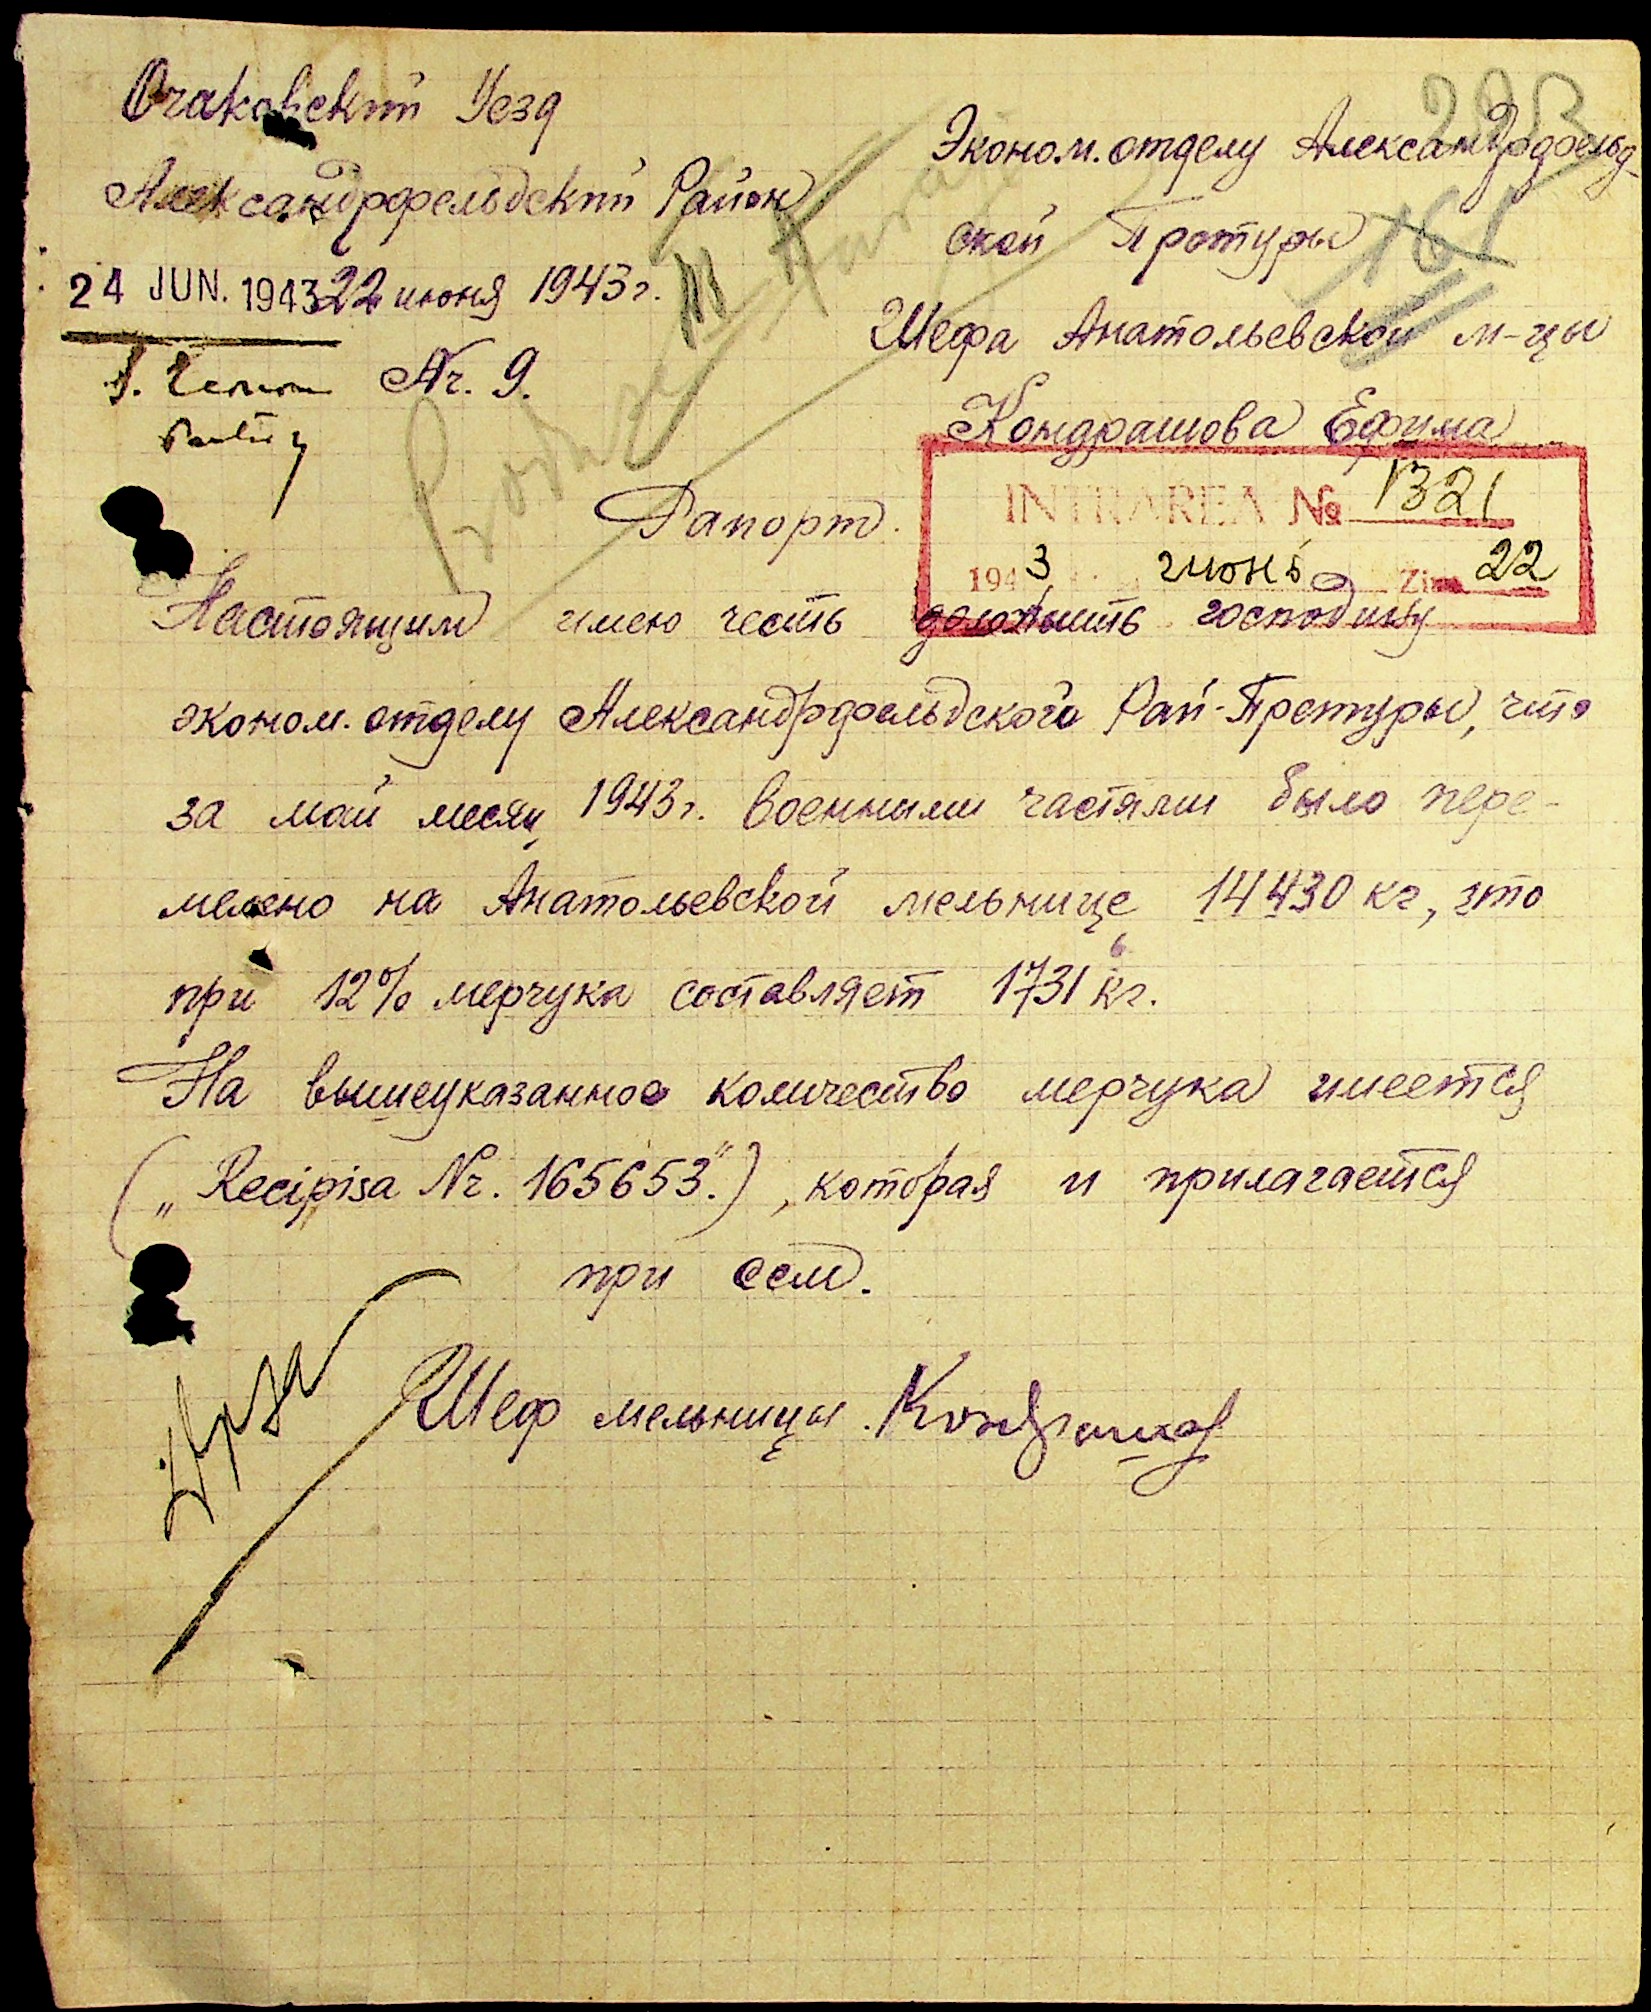 Очаковский Уезд
Александрфельдский Район
24 JUN. 1943 22 июня 1943 г.
Nr. 9.
293
161
Эконом. отделу Александрфельд-
ской Претуры
Шефа Анатольевской м-цы
Кондрашова Ефима
INTRAREA № 1321
1943 июнь Ziua 22
Рапорт.
Настоящим имею честь доложыть господину
эконом. отделу Александрфельдского Рай-Претуры, что
за май месяц 1943 г. военными частями было пере-
мелено на Анатольевской мельнице 14430 кг, что
при 12% мерчука составляет 1731,6 кг.
На вышеуказанное количество мерчука имеется
(„Recipisa Nr. 165653.“), которая и прилагается
при сем.
Шеф мельницы Кондрашов